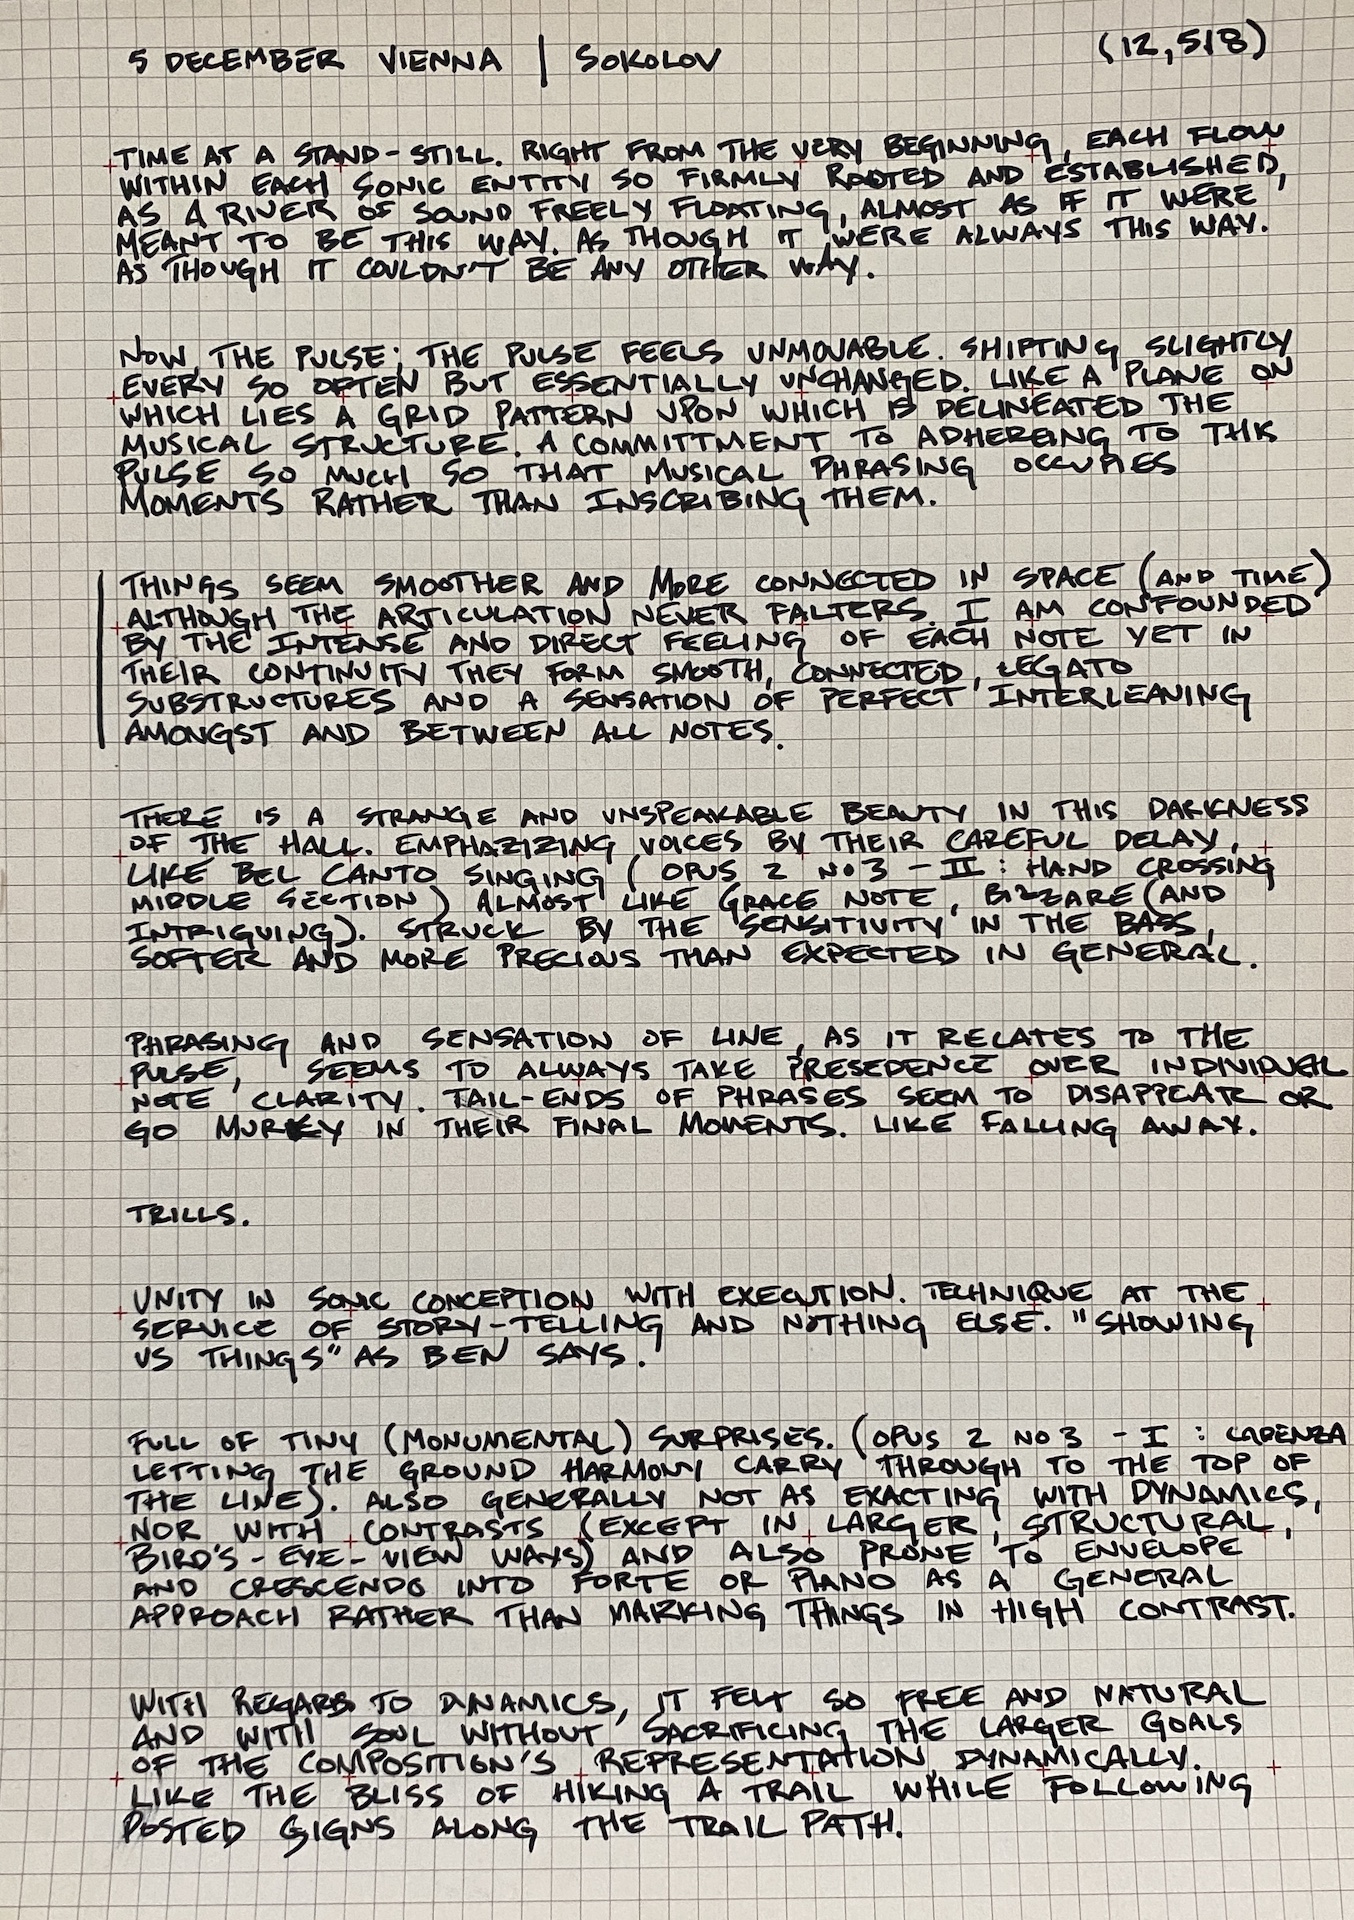 5 DECEMBER VIENNA | SOKOLOV (12,518)
TIME AT A STAND-STILL. RIGHT FROM THE VERY BEGINNING, EACH FLOW
WITHIN EACH SONIC ENTITY SO FIRMLY ROOTED AND ESTABLISHED,
AS A RIVER OF SOUND FREELY FLOATING, ALMOST AS IF IT WERE
MEANT TO BE THIS WAY. AS THOUGH IT WERE ALWAYS THIS WAY.
AS THOUGH IT COULDN'T BE ANY OTHER WAY.
NOW, THE PULSE; THE PULSE FEELS UNMOVABLE. SHIFTING SLIGHTLY
EVERY SO OFTEN BUT ESSENTIALLY UNCHANGED. LIKE A PLANE ON
WHICH LIES A GRID PATTERN UPON WHICH IS DELINEATED THE
MUSICAL STRUCTURE. A COMMITTMENT TO ADHEREING TO THIS
PULSE SO MUCH SO THAT MUSICAL PHRASING OCCUPIES
MOMENTS RATHER THAN INSCRIBING THEM.
THINGS SEEM SMOOTHER AND MORE CONNECTED IN SPACE (AND TIME)
ALTHOUGH THE ARTICULATION NEVER FALTERS. I AM CONFOUNDED
BY THE INTENSE AND DIRECT FEELING OF EACH NOTE YET IN
THEIR CONTINUITY THEY FORM SMOOTH, CONNECTED, LEGATO
SUBSTRUCTURES AND A SENSATION OF PERFECT INTERLEAVING
AMONGST AND BETWEEN ALL NOTES.
THERE IS A STRANGE AND UNSPEAKABLE BEAUTY IN THIS DARKNESS
OF THE HALL. EMPHAZIZING VOICES BY THEIR CAREFUL DELAY,
LIKE BEL CANTO SINGING (OPUS 2 NO 3 - II : HAND CROSSING
MIDDLE SECTION) ALMOST LIKE GRACE NOTE, BIZZARE (AND
INTRIGUING). STRUCK BY THE SENSITIVITY IN THE BASS,
SOFTER AND MORE PRECIOUS THAN EXPECTED IN GENERAL.
PHRASING AND SENSATION OF LINE, AS IT RELATES TO THE
PULSE, SEEMS TO ALWAYS TAKE PRESEDENCE OVER INDIVIDUAL
NOTE CLARITY. TAIL-ENDS OF PHRASES SEEM TO DISAPPEAR OR
GO MURKY IN THEIR FINAL MOMENTS. LIKE FALLING AWAY.
TRILLS.
UNITY IN SONIC CONCEPTION WITH EXECUTION. TECHNIQUE AT THE
SERVICE OF STORY-TELLING AND NOTHING ELSE. "SHOWING
US THINGS" AS BEN SAYS.
FULL OF TINY (MONUMENTAL) SURPRISES. (OPUS 2 NO 3 - I : CADENZA
LETTING THE GROUND HARMONY CARRY THROUGH TO THE TOP OF
THE LINE). ALSO GENERALLY NOT AS EXACTING WITH DYNAMICS,
NOR WITH CONTRASTS (EXCEPT IN LARGER, STRUCTURAL,
BIRD'S-EYE-VIEW WAYS) AND ALSO PRONE TO ENVELOPE
AND CRESCENDO INTO FORTE OR PIANO AS A GENERAL
APPROACH RATHER THAN MARKING THINGS IN HIGH CONTRAST.
WITH REGARDS TO DYNAMICS, IT FELT SO FREE AND NATURAL
AND WITH SOUL WITHOUT SACRIFICING THE LARGER GOALS
OF THE COMPOSITION'S REPRESENTATION, DYNAMICALLY.
LIKE THE BLISS OF HIKING A TRAIL WHILE FOLLOWING
POSTED SIGNS ALONG THE TRAIL PATH.